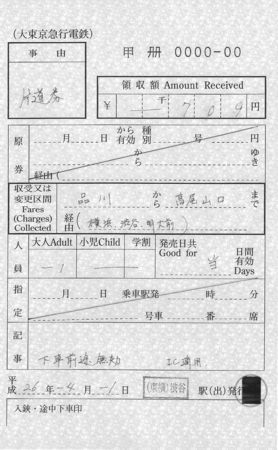 (大東京急行電鉄)
事由 甲 冊 0000-00
片道券
領収額 Amount Received
¥ 一 千 7 0 9 円
原券 月 日 から有効 種別 号 円
から ゆき
経由(
収受又は変更区間 Fares (Charges) Collected
品川 から 高尾山口 まで
経由( 横浜、渋谷、明大前 )
人員 大人Adult 小児Child 学割 発売日共 Good for 当 日間有効 Days
-1
指定 月 日 乗車駅発 時 分
号車 番 席
記事
下車前途無効
平成 26年-4月-1日 (東横)渋谷 駅(出)発行
入鋏・途中下車印